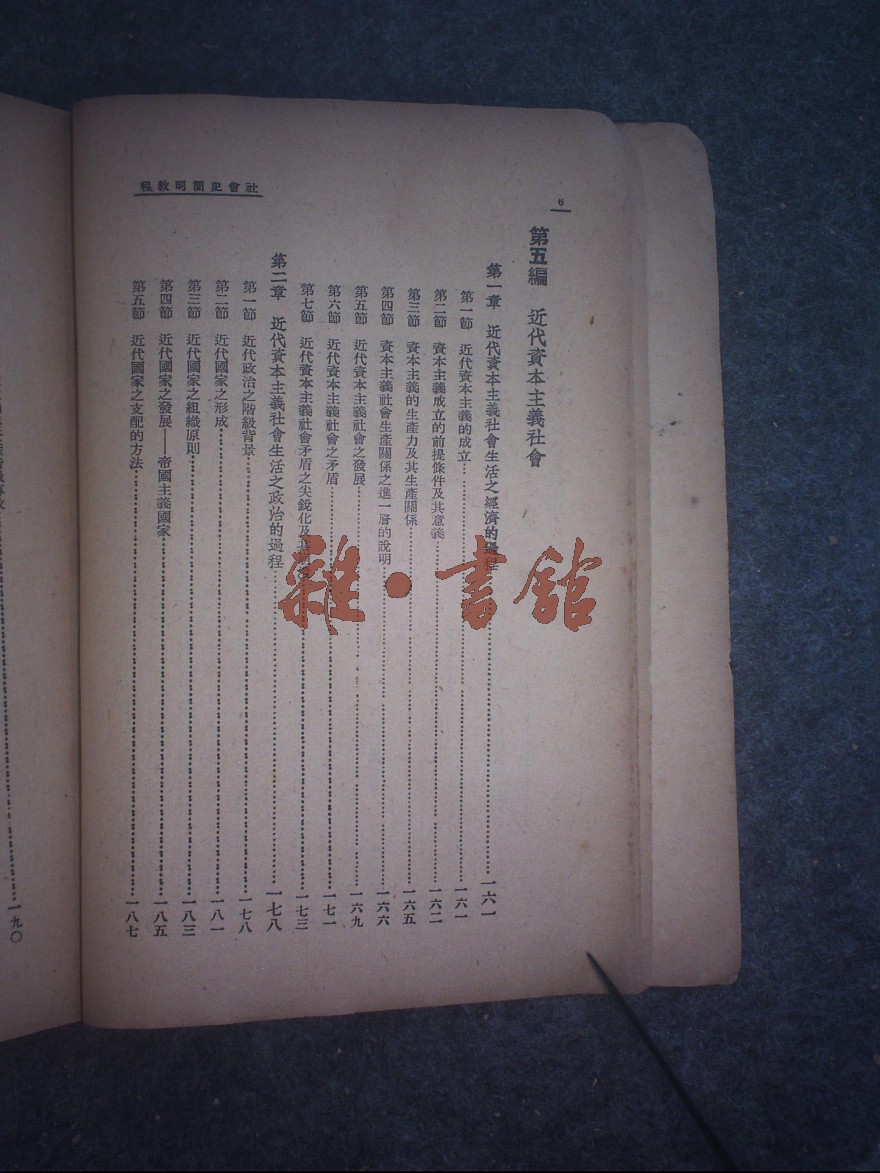 社會史簡明教程
6
第五編　近代資本主義社會
第一章　近代資本主義社會生活之經濟的過程……一六一
第一節　近代資本主義的成立……一六一
第二節　資本主義成立的前提條件及其意義……一六二
第三節　資本主義的生產力及其生產關係……一六五
第四節　資本主義社會生產關係之進一層的說明……一六六
第五節　近代資本主義社會之發展……一六九
第六節　近代資本主義社會之矛盾……一七一
第七節　近代資本主義社會矛盾之尖銳化及其……一七三
第二章　近代資本主義社會生活之政治的過程……一七八
第一節　近代政治之階級背景……一七八
第二節　近代國家之形成……一八一
第三節　近代國家之組織原則……一八三
第四節　近代國家之發展——帝國主義國家……一八五
第五節　近代國家之支配的方法……一八七
一九〇
雜·書館